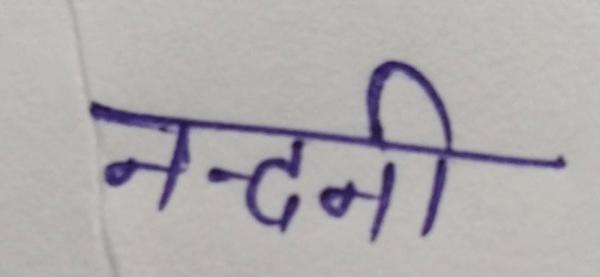 नन्दनी